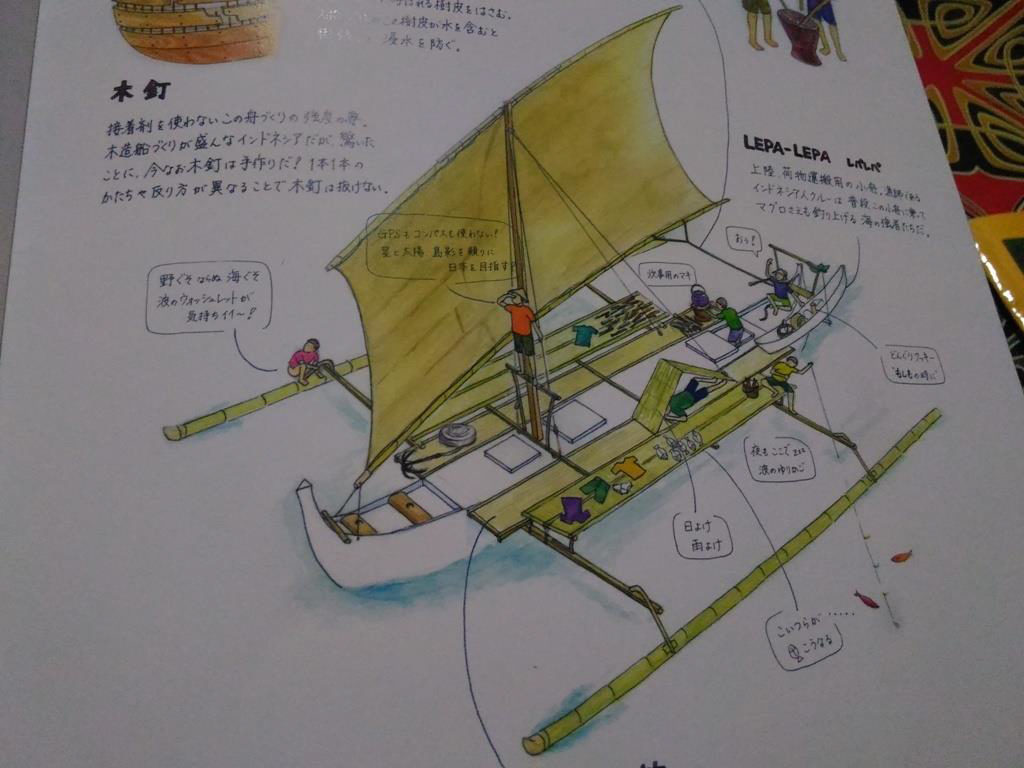 れる樹皮をはさむ。
樹皮が水を含むと
浸水を防ぐ。
木釘
接着剤を使わないこの舟づくりの強度の要。
木造船づくりが盛んなインドネシアだが、驚いた
ことに、今なお木釘は手作りだ!1本1本の
かたちや反り方が異なることで木釘は抜けない。
LEPA-LEPA レパレパ
上陸、荷物運搬用の小舟。漁師である
インドネシア人クルーは普段この小舟に乗って
マグロさえも釣り上げる海の強者たちだ。
GPSもコンパスも使わない!
星と太陽 島影を頼りに
日本を目指す!
おぅ!
炊事用のマキ
野ぐそならぬ海ぐそ
波のウォッシュレットが
気持ちイイ〜!
どんぐりクッキー
の時に
夜もここでzzz
波のゆりかご
日よけ
雨よけ
こいつらが……
こうなる